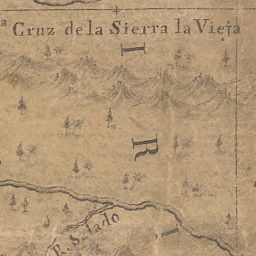 a Cruz de la Sierra la Vieja
I
R
I
R. Salado